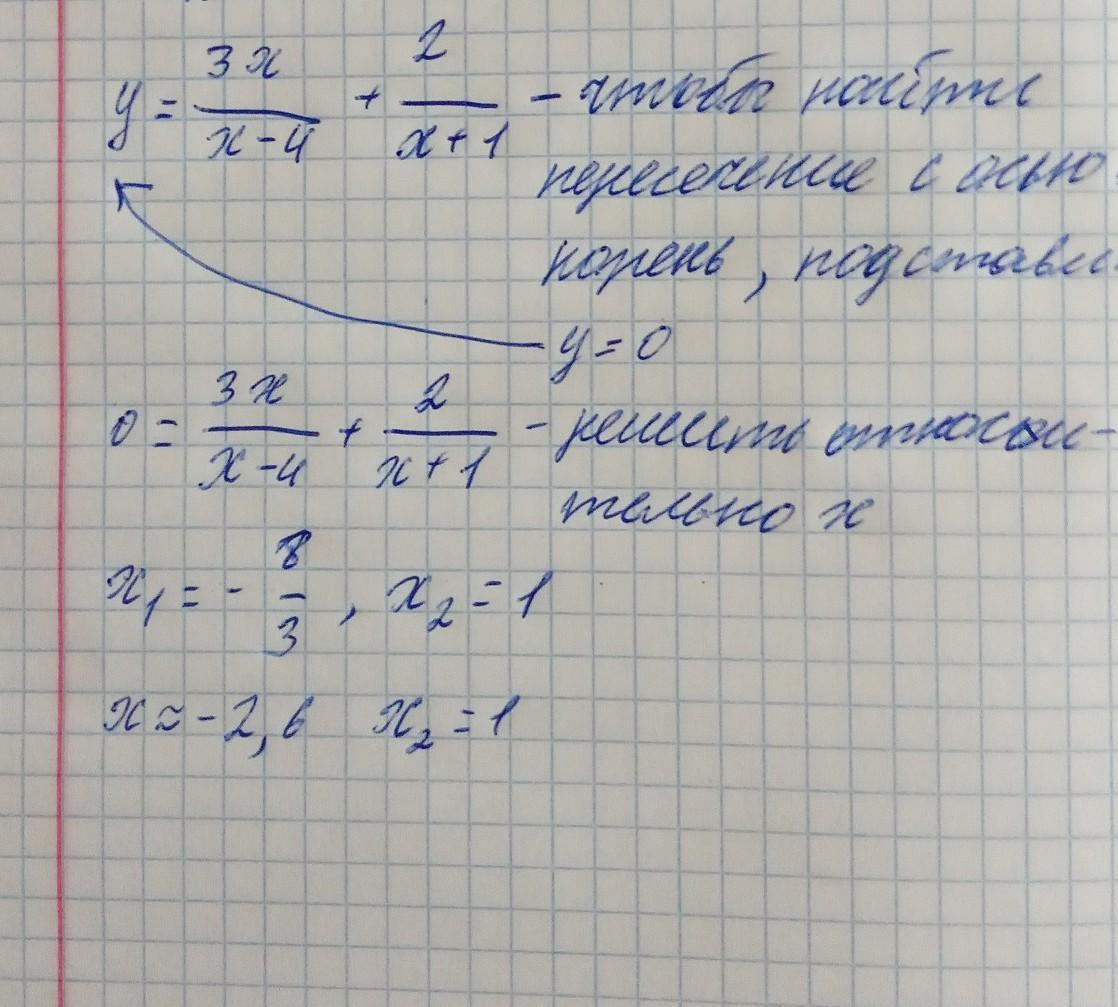 y = 3x/(x-4) + 2/(x+1) - чтобы найти
пересечение с осью
корень, подстави
y=0
0 = 3x/(x-4) + 2/(x+1) - решить относи-
тельно x
x₁ = - 8/3, x₂ = 1
x ≈ -2,6 x₂ = 1